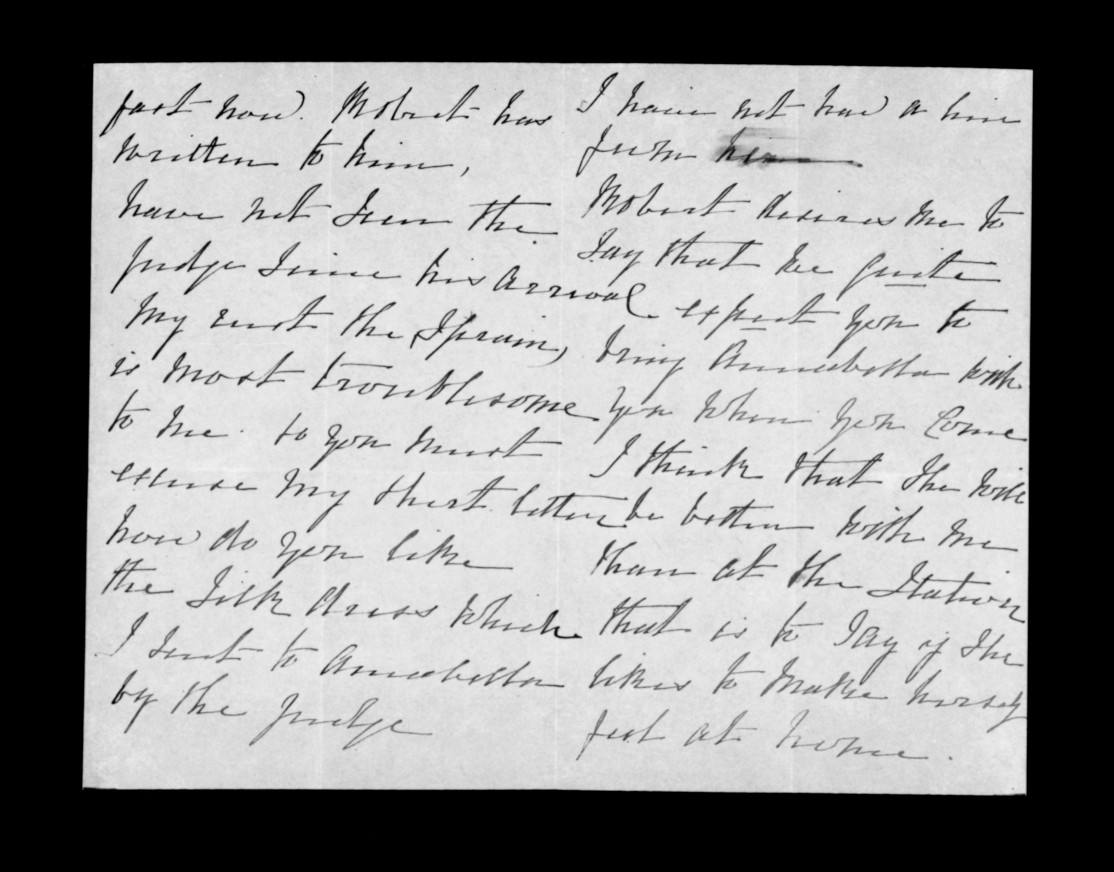 fast now. Robert has
written to him,
have not seen the
Judge since his arrival
My rist the Sprain,
is most troublesome
to me. so you must
excuse my short letter
how do you like
the Silk dress which
I sent to Annabella
by the Judge
I have not had a line
from him
Robert desires me to
say that he quite
expect you to
bring Annabella with
you when you Come
I think that She will
be better with me
than at the Station
that is to Say if She
likes to make herself
feel at home.